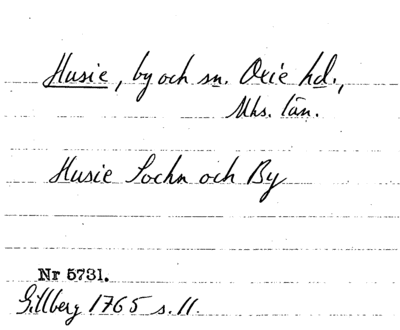 Husie, by och sn. Oxie hd.,
Mhs. län.
Husie Sochn och By
Nr 5731.
Gillberg 1765 s. 11.